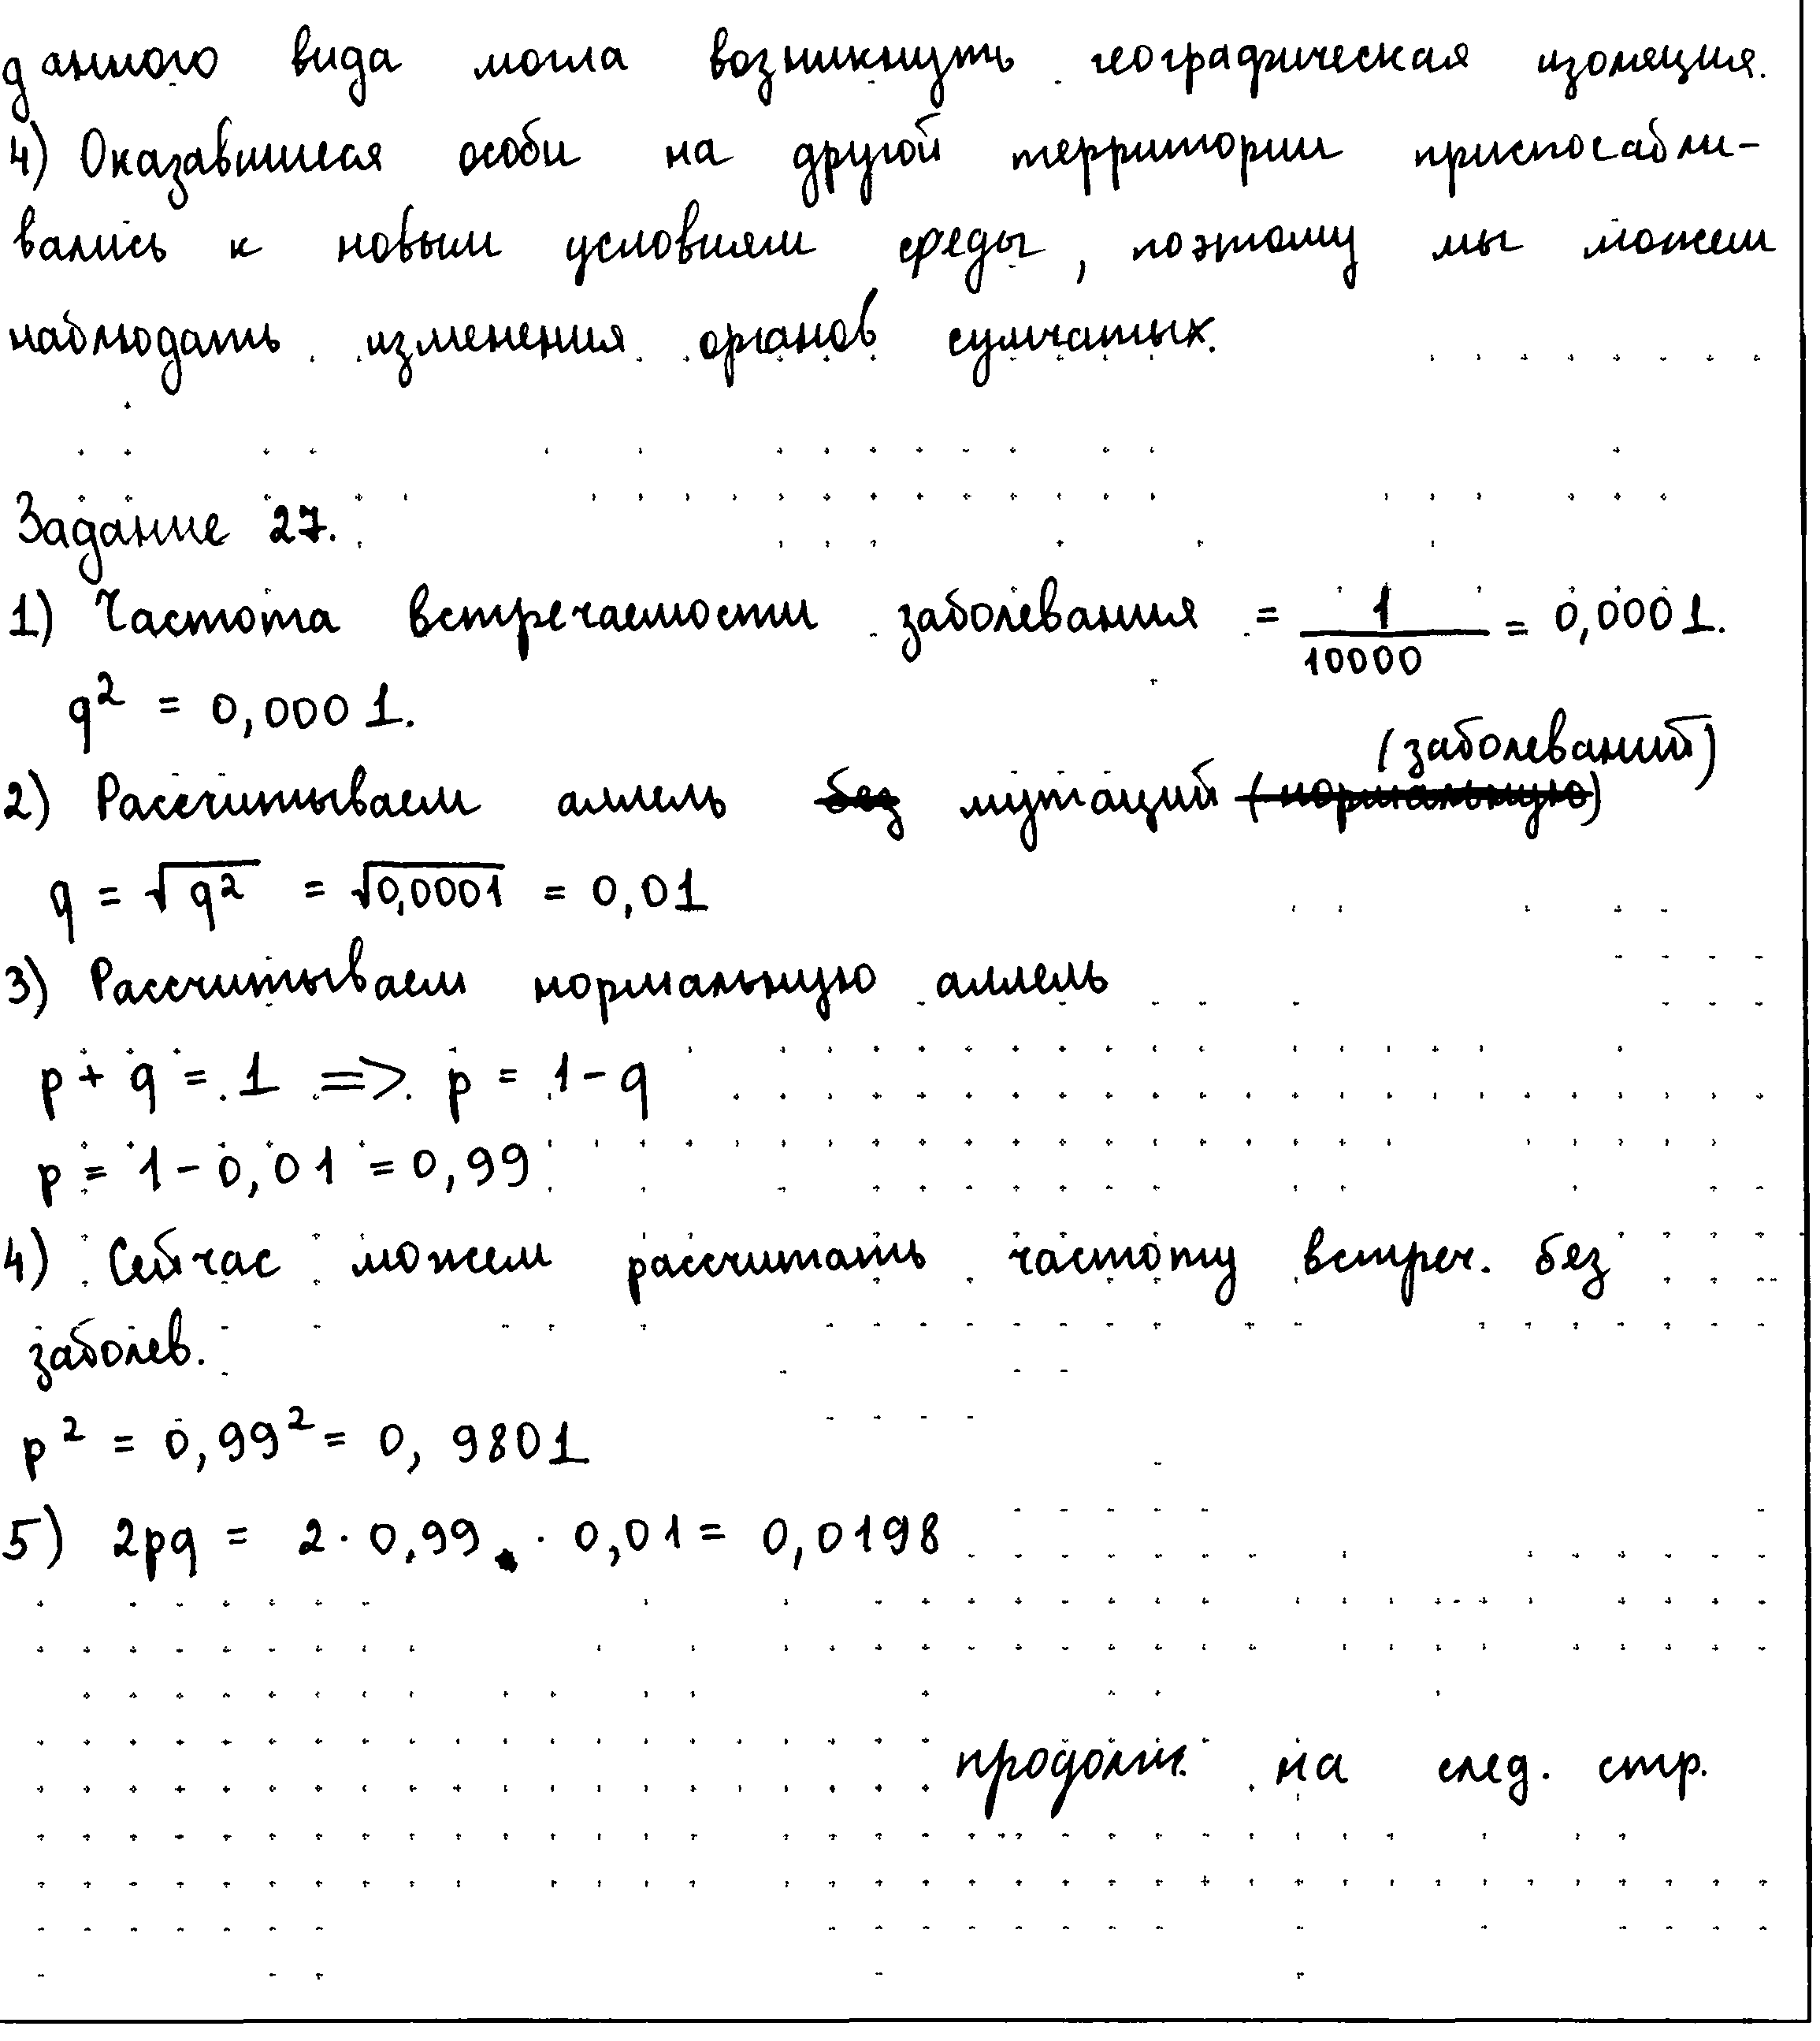 данного вида могла возникнуть географическая изоляция.
4) Оказавшиеся особи на другой территории приспосабли-
вались к новым условиям среды, поэтому мы можем
наблюдать изменения органов сумчатых.
Задание 27.
1) Частота встречаемости заболевания = 1/10000 = 0,0001.
q² = 0,0001.
(заболеваний)
2) Рассчитываем аллель без мутаций (нормальную)
q = √q² = √0,0001 = 0,01
3) Рассчитываем нормальную аллель
p + q = 1 => p = 1 - q
p = 1 - 0,01 = 0,99
4) Сейчас можем рассчитать частоту встреч. без
заболев.
p² = 0,99² = 0,9801
5) 2pq = 2 · 0,99 · 0,01 = 0,0198
продолж. на след. стр.